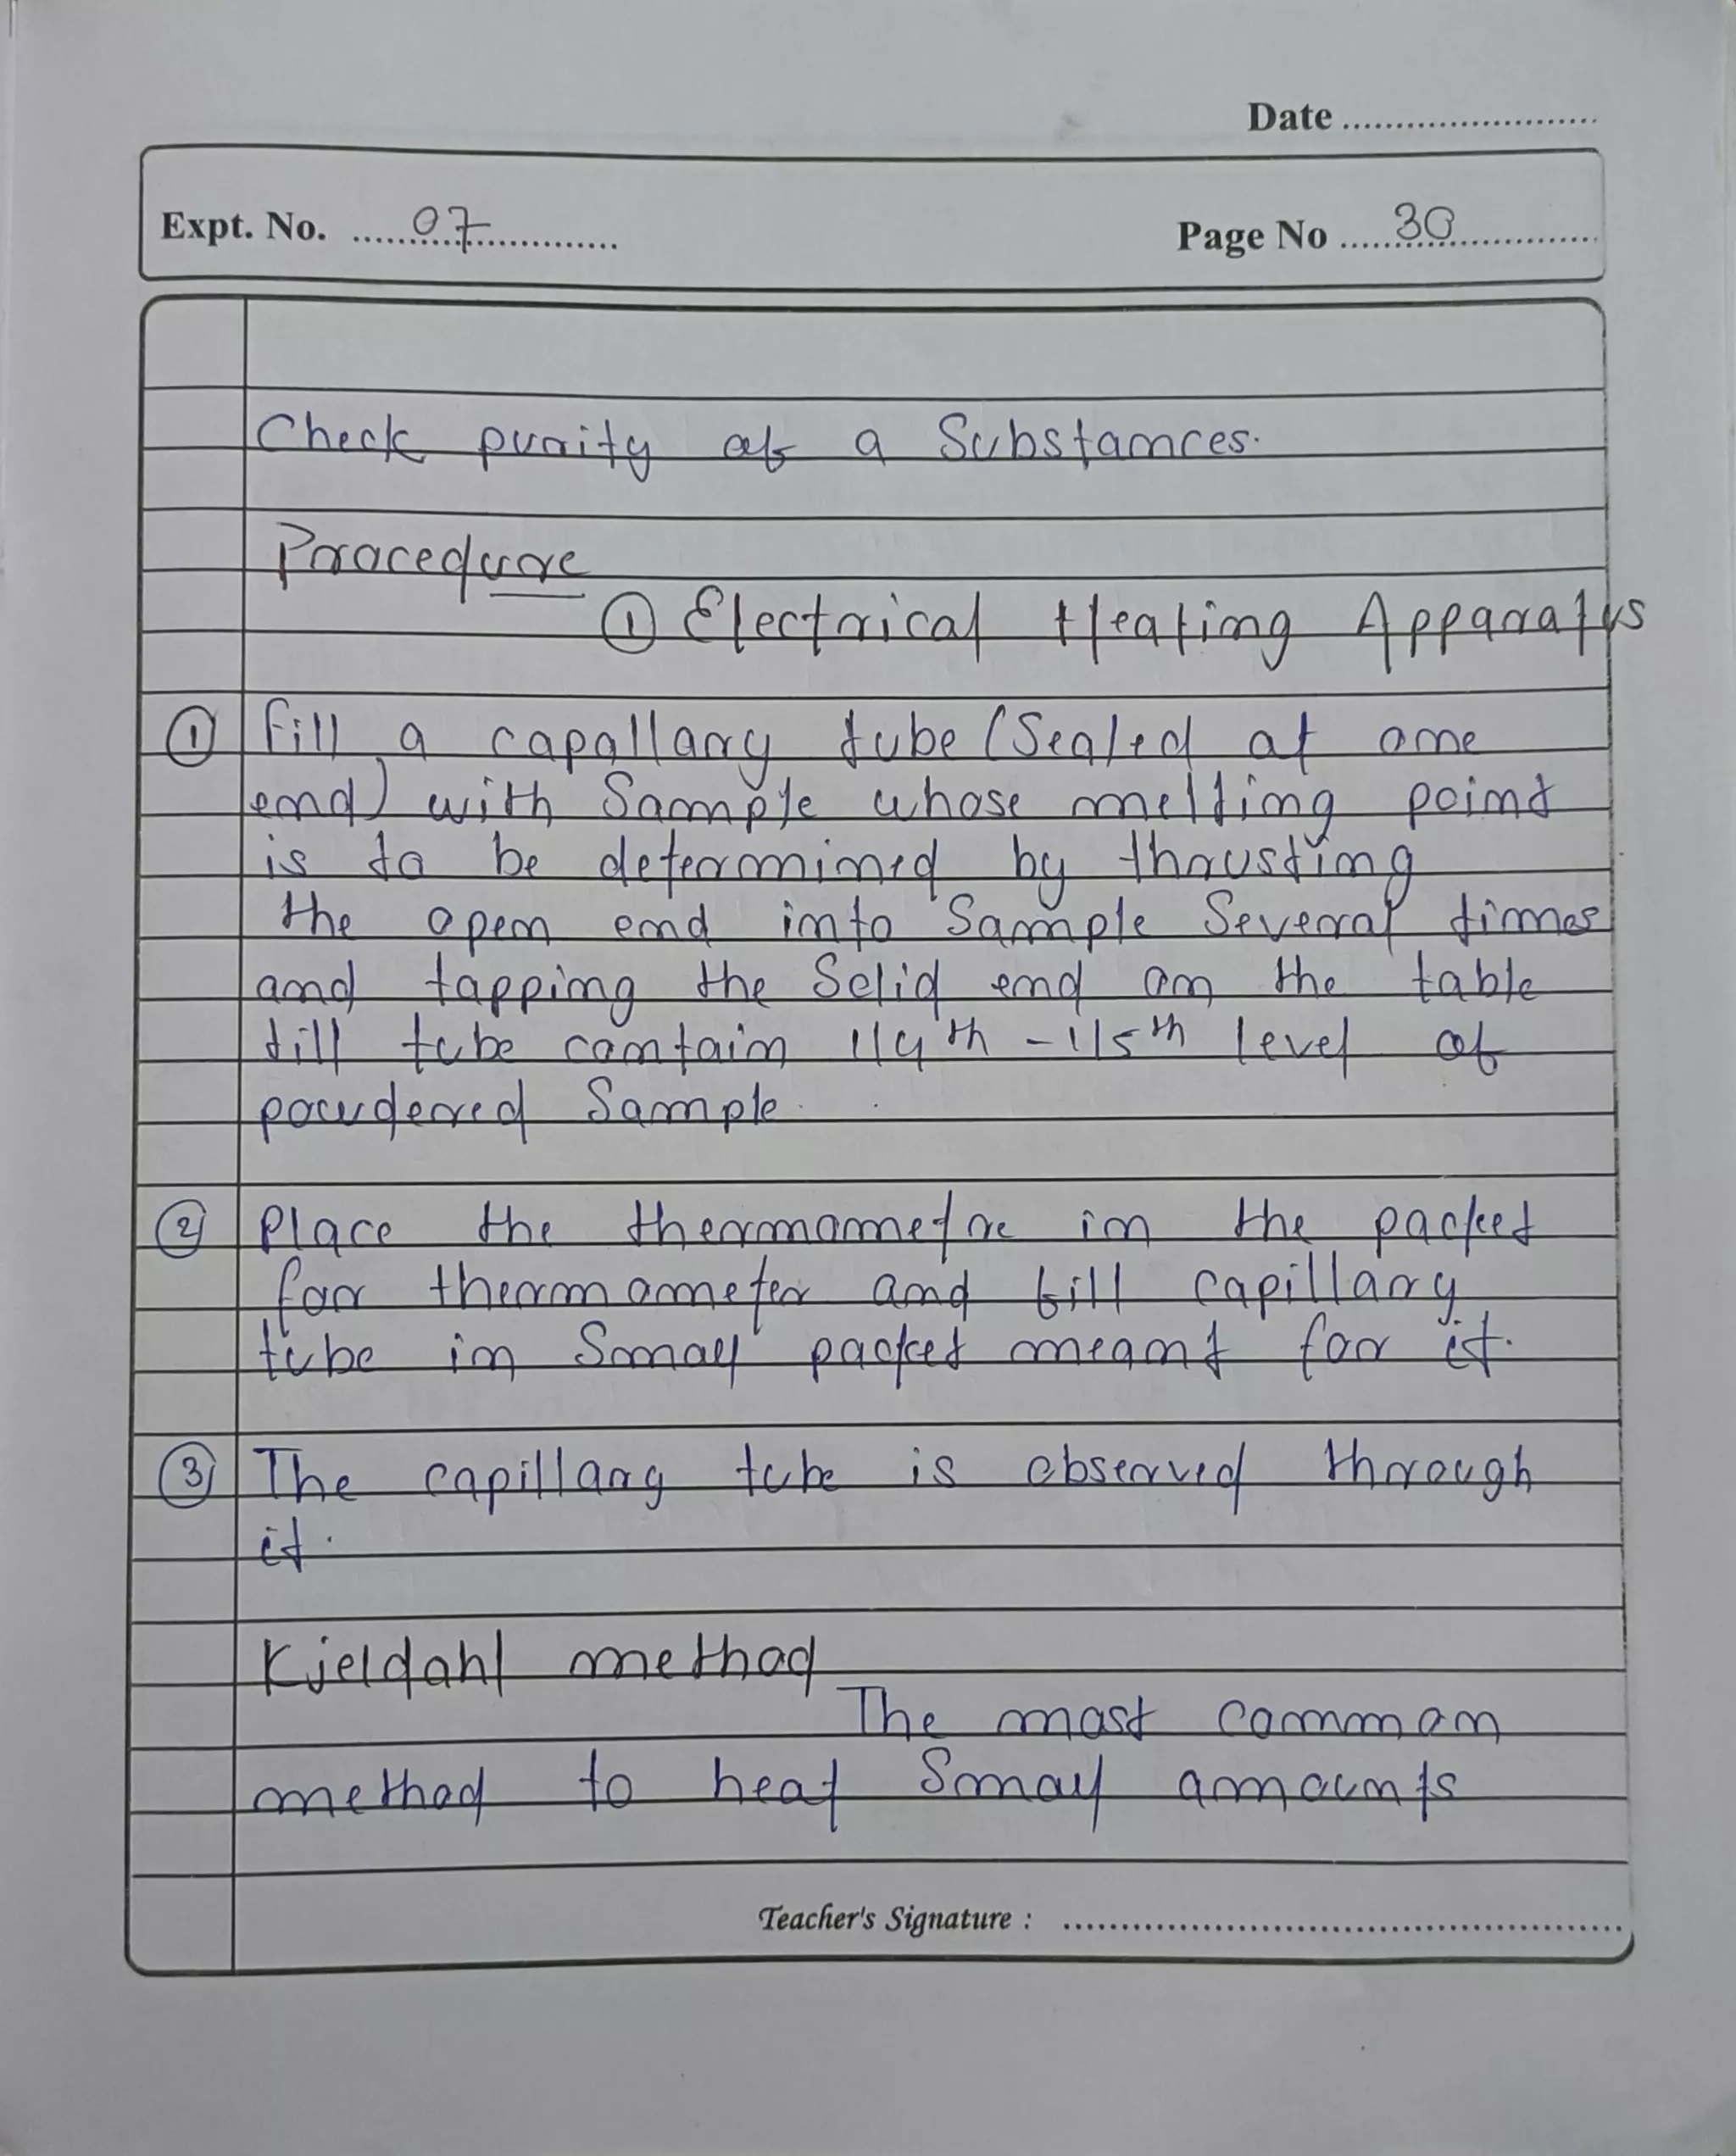 Date ........................
Expt. No. ....07....................
Page No .....30...............
Check purity of a Substances.
Procedure
① Electrical Heating Apparatus
① Fill a capallary tube (Sealed at one
end) with Sample whose melting point
is to be determined by thrusting
the open end into Sample Several times
and tapping the Selid end on the table
till tube contain 1/4th - 1/5th level of
powdered Sample.
② Place the thermometre in the packet
for thermometer and fill capillary
tube in Small packet meant for it.
③ The capillary tube is observed through
it.
Kjeldahl method
The most common
method to heat Small amounts
Teacher's Signature : ................................................